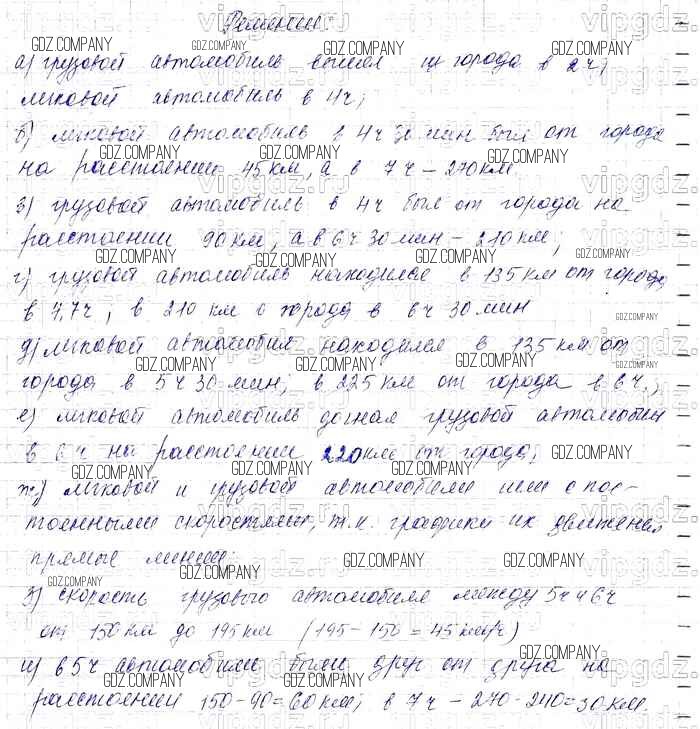 Решение:
а) грузовой автомобиль выехал из города в 2 ч;
легковой автомобиль в 4 ч;
б) легковой автомобиль в 4 ч 30 мин был от города
на расстоянии 45 км, а в 7 ч – 270 км.
в) грузовой автомобиль в 4 ч был от города на
расстоянии 90 км, а в 6 ч 30 мин – 210 км;
г) грузовой автомобиль находился в 135 км от города
в 4,7 ч, в 210 км о города в 6 ч 30 мин
д) легковой автомобиль находился в 135 км от
города в 5 ч 30 мин; в 225 км от города в 6 ч.;
е) легковой автомобиль догнал грузовой автомобиль
в 6 ч на расстоянии 220 км от города;
ж) легковой и грузовой автомобили шли с пос-
тоянными скоростями, т.к. графики их движения
прямые линии
з) скорость грузового автомобиля между 5 ч и 6 ч
от 150 км до 195 км (195 – 150 = 45 км/ч)
и) в 5 ч автомобили были друг от друга на
расстоянии 150 – 90 = 60 км; в 7 ч – 270 - 240 = 30 км.